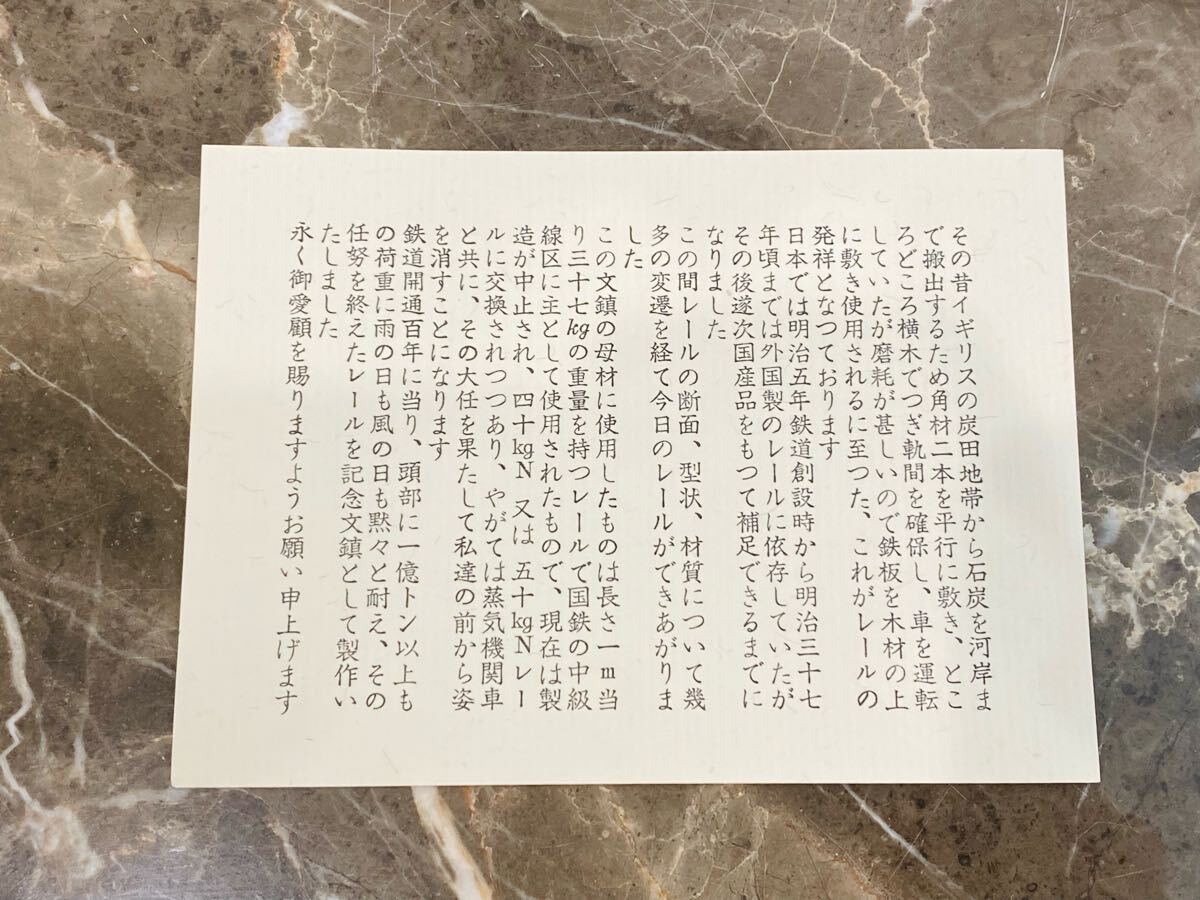 その昔イギリスの炭田地帯から石炭を河岸ま
で搬出するため角材二本を平行に敷き、とこ
ろどころ横木でつぎ軌間を確保し、車を運転
していたが磨耗が甚しいので鉄板を木材の上
に敷き使用されるに至つた、これがレールの
発祥となつております
日本では明治五年鉄道創設時から明治三十七
年頃までは外国製のレールに依存していたが
その後遂次国産品をもつて補足できるまでに
なりました
この間レールの断面、型状、材質について幾
多の変遷を経て今日のレールができあがりま
した
この文鎮の母材に使用したものは長さ一m当
り三十七kgの重量を持つレールで国鉄の中級
線区に主として使用されたもので、現在は製
造が中止され、四十kgN 又は 五十kgNレー
ルに交換されつつあり、やがては蒸気機関車
と共に、その大任を果たして私達の前から姿
を消すことになります
鉄道開通百年に当り、頭部に一億トン以上も
の荷重に雨の日も風の日も黙々と耐え、その
任努を終えたレールを記念文鎮として製作い
たしました
永く御愛顧を賜りますようお願い申上げます